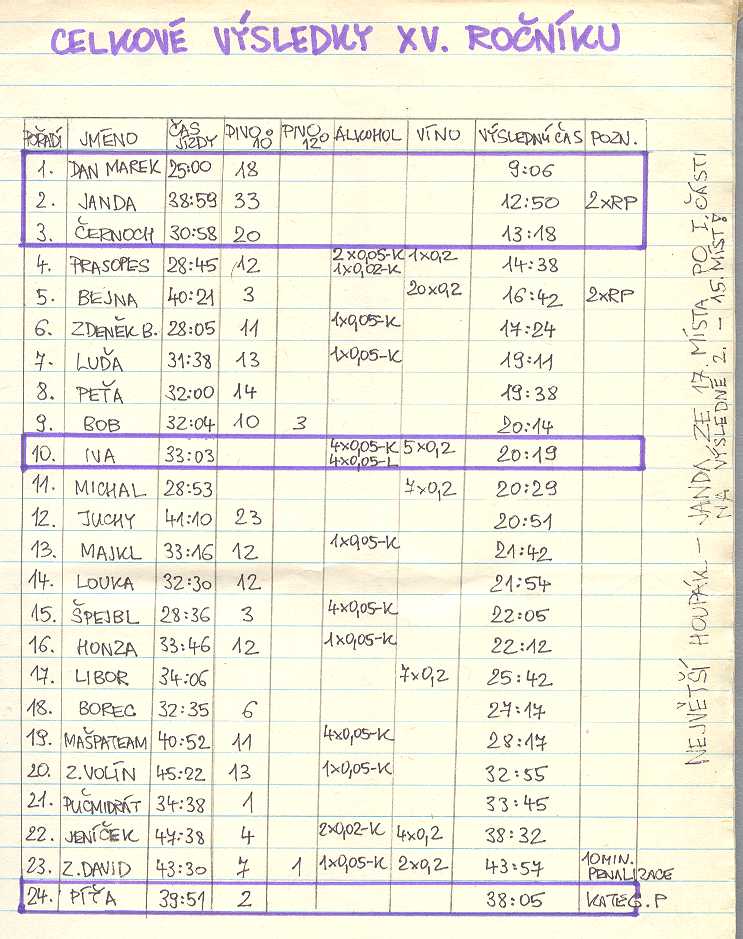 CELKOVÉ VÝSLEDKY XV. ROČNÍKU
POŘADÍ JMÉNO ČAS JÍZDY PIVO 10° PIVO 12° ALKOHOL VÍNO VÝSLEDNÝ ČAS POZN.
1. DAN MAREK 25:00 18 9:06
2. JANDA 38:59 33 12:50 2xRP
3. ČERNOCH 30:58 20 13:18
4. PRASOPES 28:45 12 2x0,05-K 1x0,02-K 1x0,2 14:38
5. BEJNA 40:21 3 20x0,2 16:42 2xRP
6. ZDENĚK B. 28:05 11 1x0,05-K 17:24
7. LUĎA 31:38 13 1x0,05-K 19:11
8. PEŤA 32:00 14 19:38
9. BOB 32:04 10 3 20:14
10. IVA 33:03 4x0,05-K 4x0,05-L 5x0,2 20:19
11. MICHAL 28:53 7x0,2 20:29
12. JUCHY 41:10 23 20:51
13. MAJKL 33:16 12 1x0,05-K 21:42
14. LOUKA 32:30 12 21:54
15. ŠPEJBL 28:36 3 4x0,05-K 22:05
16. HONZA 33:46 12 1x0,05-K 22:12
17. LIBOR 34:06 7x0,2 25:42
18. BOREC 32:35 6 27:17
19. MAŠPATEAM 40:52 11 4x0,05-K 28:17
20. Z.VOLÍN 45:22 13 1x0,05-K 32:55
21. PUČMIDRÁT 34:38 1 33:45
22. JENÍČEK 47:38 4 2x0,02-K 4x0,2 38:32
23. Z.DAVID 43:30 7 1 1x0,05-K 2x0,2 43:57 10MIN. PENALIZACE
24. PÍŤA 39:51 2 38:05 KATEG.P
NEJVĚTŠÍ HOUPÁK – JANDA ZE 17. MÍSTA PO I. ČÁSTI
NA VÝSLEDNÉ 2. – 15. MÍST!